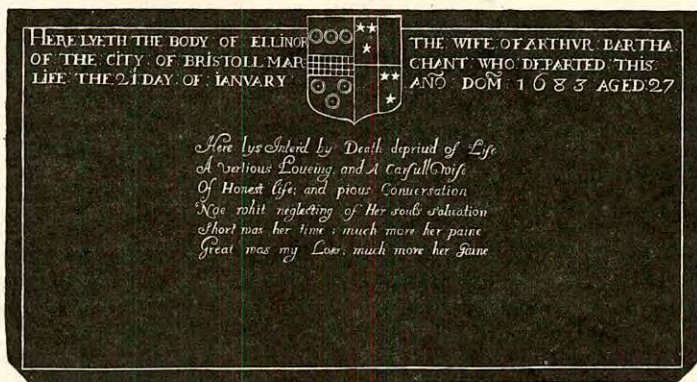 HERE LYETH THE BODY OF ELLINOR THE WIFE OF ARTHVR BARTHA
OF THE CITY OF BRISTOLL MAR CHANT WHO DEPARTED THIS
LIFE THE 21 DAY OF IANVARY ANO DOM 1683 AGED 27
Here lys Interd by Death depriud of Life
A vertious Loueing, and A Carfull wife
Of Honest life; and pious Conuersation
Noe whit neglecting of Her souls saluation
Short was her time; much more her paine
Great was my Loss; much more her Gaine